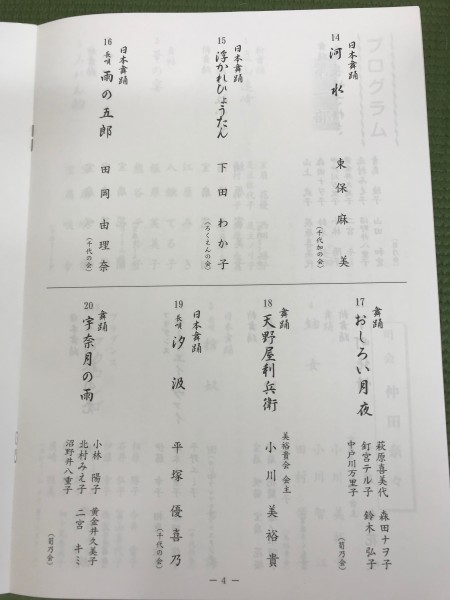 14 日本舞踊
河水
東保麻美
(千代加の会)
15 日本舞踊
浮かれひょうたん
下田わか子
(ろくえんの会)
16 日本舞踊
長唄 雨の五郎
田岡由理奈
(千代の会)
17 舞踊
おしろい月夜
萩原喜美代 森田ナヲ子
釘宮テル子 鈴木弘子
中戸川万里子
(筍乃会)
18 舞踊
天野屋利兵衛
美裕貴会 会主 小川美裕貴
19 日本舞踊
長唄 汐汲
平塚優喜乃
(千代の会)
20 舞踊
宇奈月の雨
小林陽子 黄金井久美子
北村みえ子 二宮キミ
沼野井八重子
(筍乃会)
― 4 ―